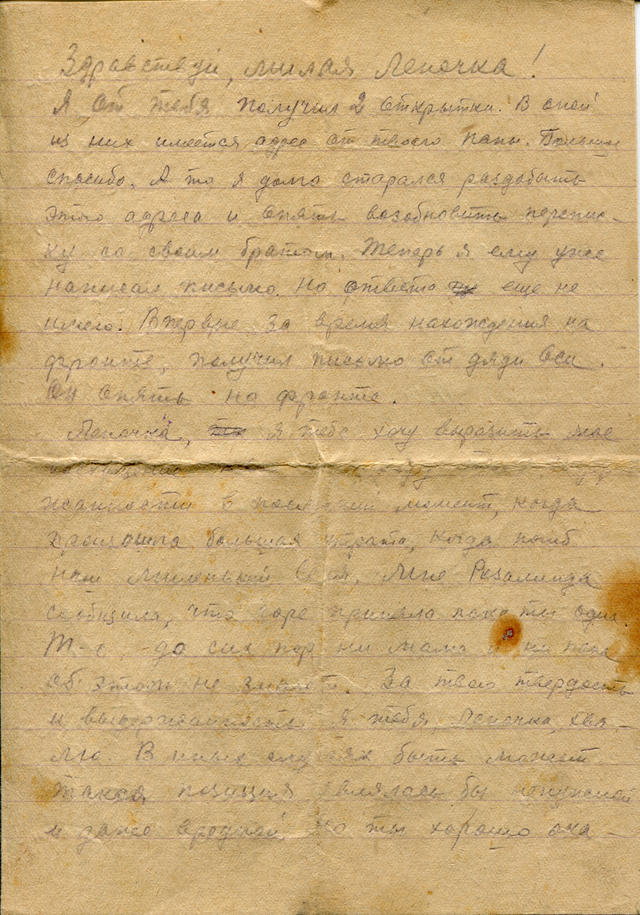 Здравствуй, милая Леночка!
Я от тебя получил 2 открытки. В одной
из них имеется адрес от твоего папы. Большое
спасибо. А то я долго старался раздобыть
этого адреса и опять возобновить перепис-
ку со своим братом. Теперь я ему уже
написал письмо. Но ответа еще не
имею. Впервые за время нахождения на
фронте, получил письмо от дяди Оси.
Он опять на фронте.
Леночка, я тебе хочу выразить мое
в последний момент, когда
большая утрата, когда погиб
наш миленький Мне Розалинда
сообщила, что горе приняла пока ты одна.
Т-е, -до сих пор ни мама и ни папа
об этом не знают. За твою твердость
и выдержанность я тебя, Леночка, хва-
лю. В иных случаях быть может
такая позиция являлась бы ненужной
и даже вредной но ты хорошо